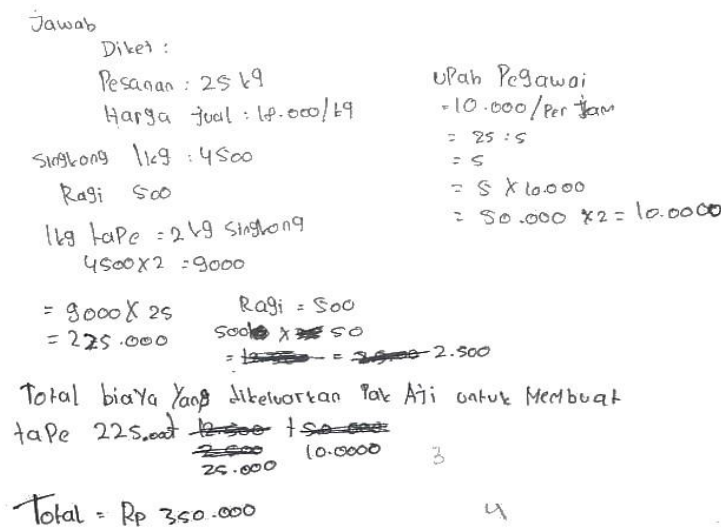 Jawab
Diket :
Pesanan : 25 kg
Harga jual : 18.000/kg
Singkong 1kg : 4500
Ragi 500
1kg tape = 2kg singkong
4500X2 = 9000
= 9000 X 25
= 225.000
Ragi = 500
500 x 50
= = 2.500
upah Pegawai
= 10.000/Per Jam
= 25 : 5
= 5
= 5 X 10.000
= 50.000 X2 = 10.0000
Total biaya Yang dikeluarkan Pak Aji untuk Membuat
tape 225.000 +
25.000 10.0000
3
Total = Rp 350.000
4